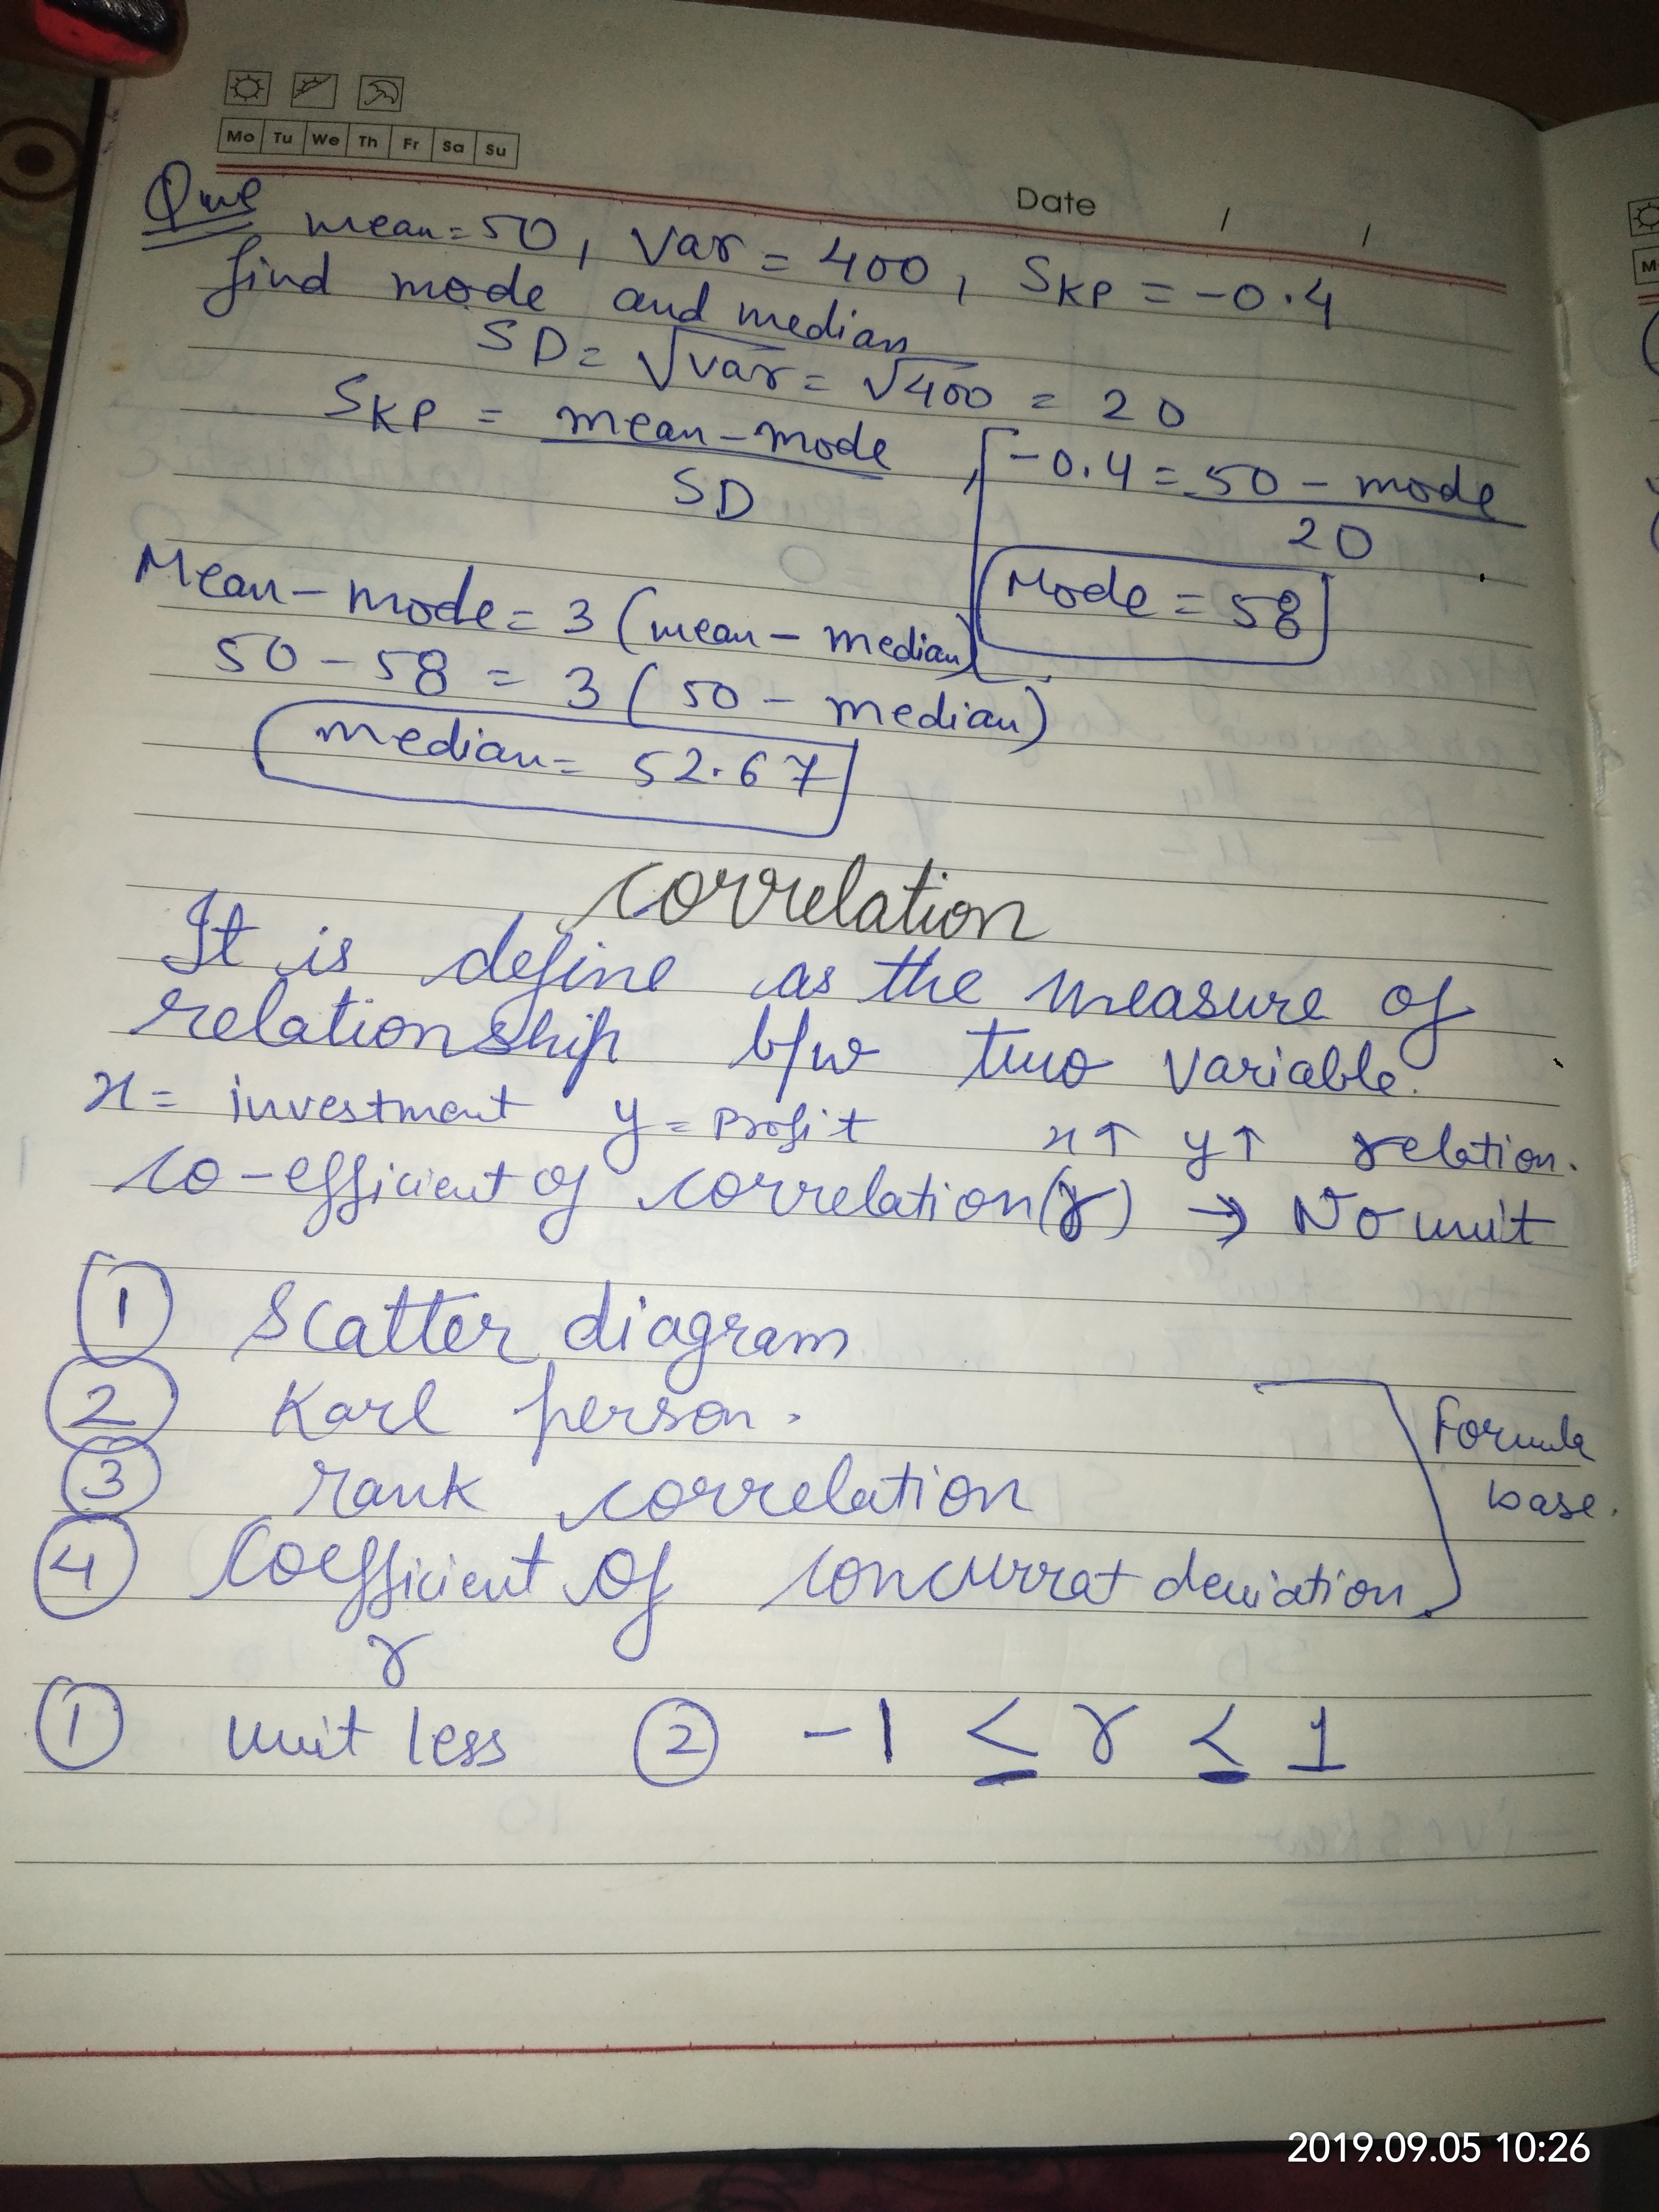 Mo Tu We Th Fr Sa Su
Date / /
Que mean = 50, Var = 400, SKP = -0.4
find mode and median
SD = √var = √400 = 20
SKP = mean - mode / SD , -0.4 = 50 - mode / 20
Mode = 58
Mean - mode = 3 (mean - median)
50 - 58 = 3 (50 - median)
median = 52.67
correlation
It is define as the measure of
relationship b/w two variable.
x = investment y = Profit x↑ y↑ relation.
co-efficient of correlation (r) → No unit
① Scatter diagram
② Karl person.
③ rank correlation
④ Coefficient of concurrat deviation.
Formula
base.
r
① unit less ② -1 ≤ r ≤ 1
2019.09.05 10:26